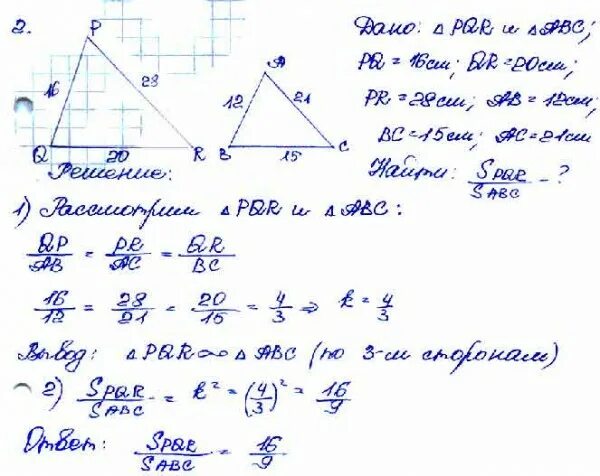 2.
P
16
28
Q
20
R
A
12
21
B
15
C
Дано: △PQR и △ABC;
PQ = 16см; QR = 20см;
PR = 28см; AB = 12см;
BC = 15см; AC = 21см
Найти: S_PQR/S_ABC - ?
Решение:
1) Рассмотрим △PQR и △ABC:
QP/AB = PR/AC = QR/BC
16/12 = 28/21 = 20/15 = 4/3 ⇒ k = 4/3
Вывод: △PQR ∾ △ABC (по 3-м сторонам)
2) S_PQR/S_ABC = k² = (4/3)² = 16/9
Ответ: S_PQR/S_ABC = 16/9